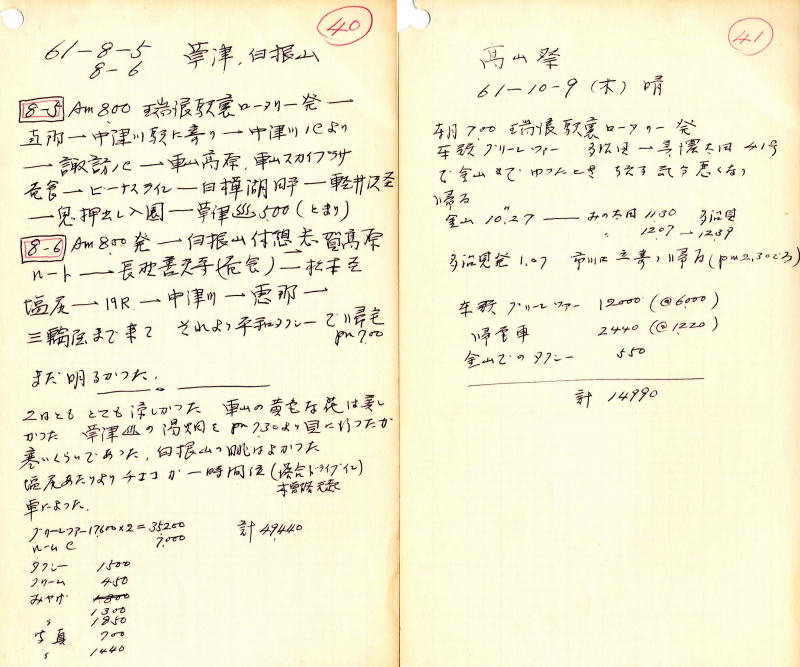 40
61-8-5 草津、白根山
8-6
8-5 Am 8.00 瑞浪駅裏ロータリー発 —
— 中津川駅に寄り — 中津川ICより
— 諏訪IC — 車山高原、車山スカイプラザ
昼食 — ビーナスライン — 白樺湖 — 軽井沢
— 鬼押出し入園 — 草津♨ 5.00 (とまり)
8-6 Am 8.00 発 — 白根山 志賀高原
ルート — 長野善光寺(昼食) — 松本
塩尻 — 19R — 中津川 — 恵那 —
三輪店まで来て それより平和タクシーで帰宅
pm 7.00
まだ明るかった.
2日とも とても涼しかった 車山の黄色な花は美し
かった 草津♨の湯畑を pm 7.30より見に行ったが
寒いくらいであった、白根山の眺はよかった
塩尻あたりよりチエコが一時間位 (落合ドライブイン)
木曽路
車によった.
グリーンツアー 17600×2=35200 計 49,440
7,000
タクシー 1500
クリーム 450
みやげ 1,800
1300
〃 1850
写真 700
〃 1440
41
高山祭
61-10-9 (木) 晴
朝 7.00 瑞浪駅裏ロータリー発
グリーンツアー 多治見 — 美濃太田 41号
で金山まで ゆったとき 気分悪くなり
帰る
金山 10.27 — みの太田 1130 多治見
〃 1207 → 1239
多治見発 1.07 市川に立寄り帰る(pm 2.30ごろ)
グリーンツアー 12000 (@6000)
帰電車 2440 (@1220)
金山でのタクシー 550
計 14990